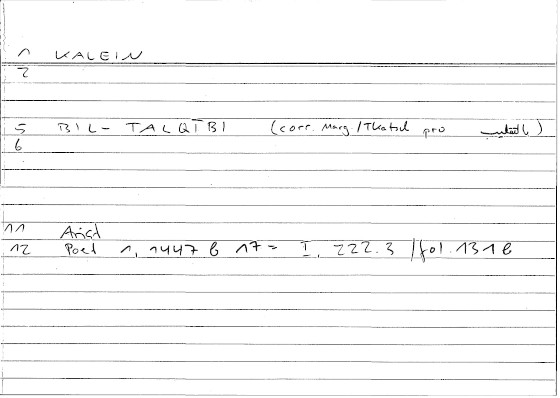 1 KALEIN
2
5 BIL- TALQĪBI (corr. Marg./Tkatsch pro )
6
11 Arist
12 Poet 1, 1447 b 17 = I, 222.3 / fol. 131 b